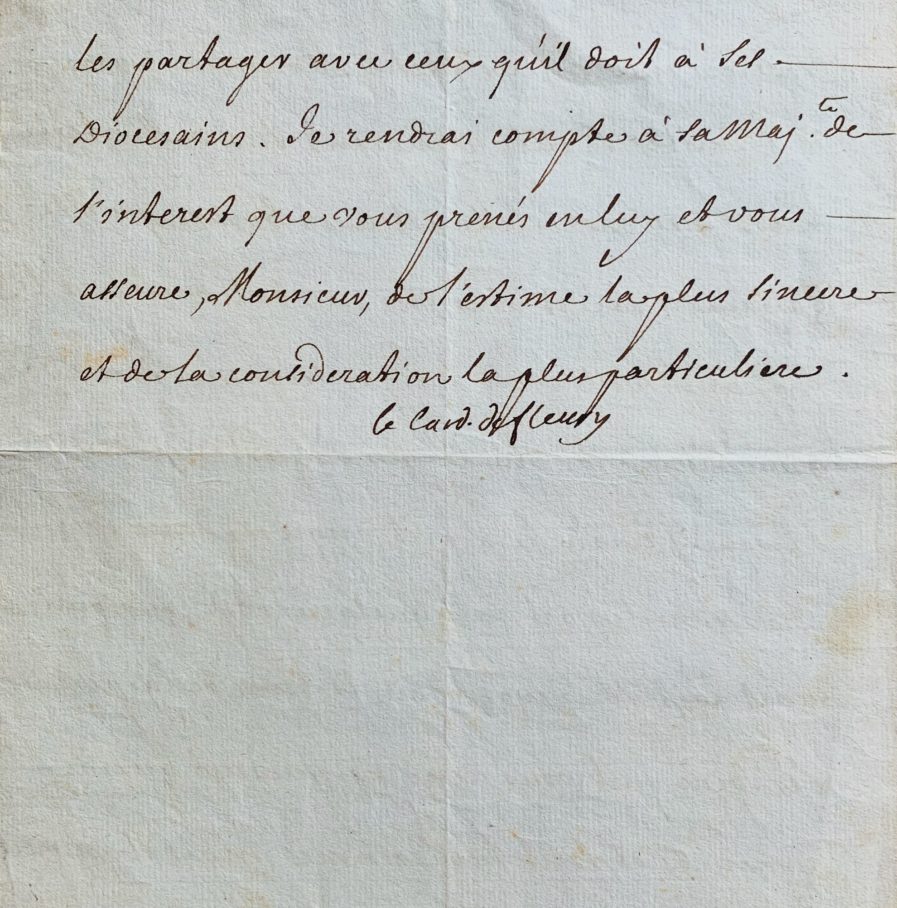 les partager avec ceux qu'il doit à ses
Diocesains. Je rendrai compte à sa Maj.te de
l'interest que vous prenés en luy et vous
asseure, Monsieur, de l'estime la plus sincere
et de la consideration la plus particuliere.
le Card. de fleury